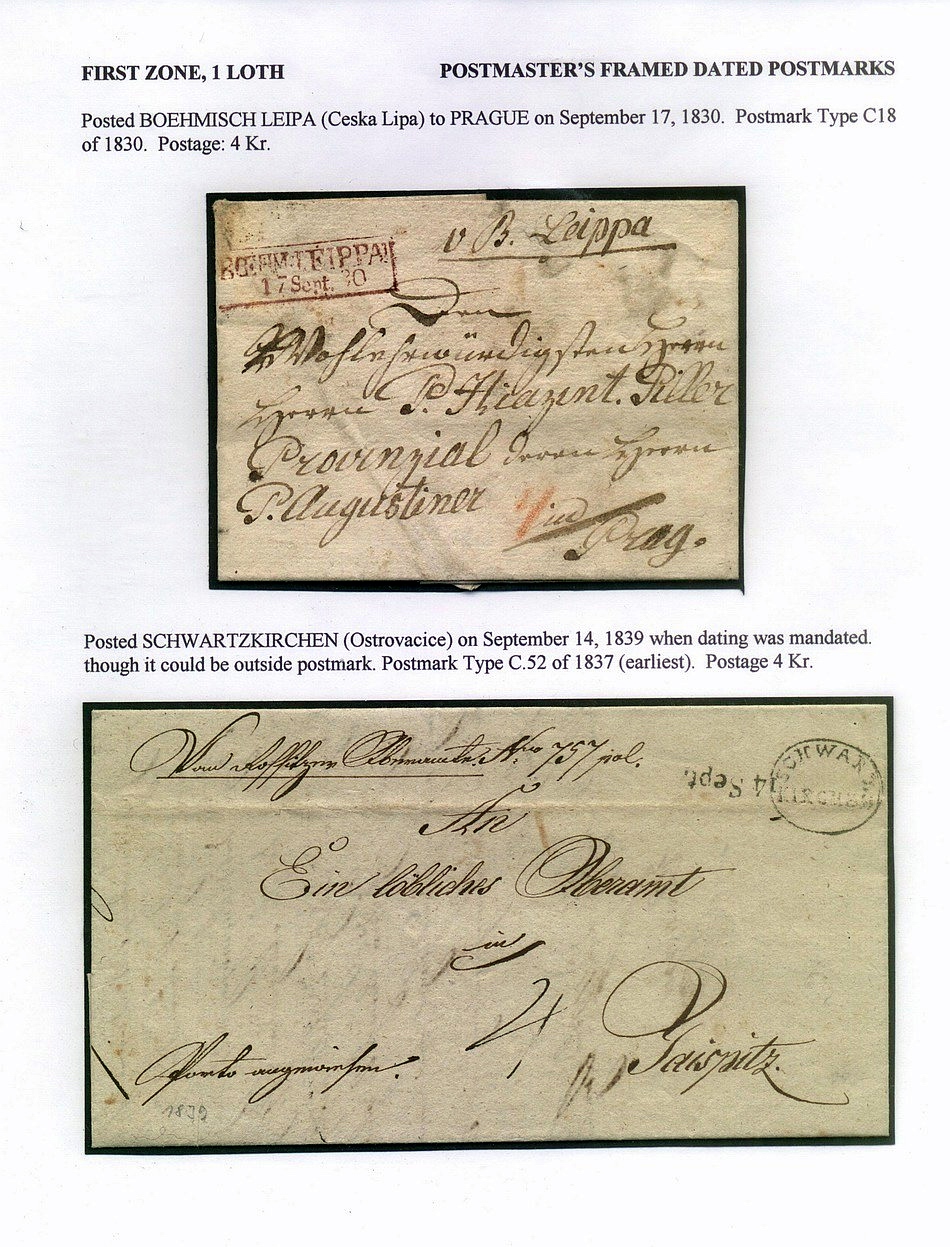 FIRST ZONE, 1 LOTH
POSTMASTER'S FRAMED DATED POSTMARKS
Posted BOEHMISCH LEIPA (Ceska Lipa) to PRAGUE on September 17, 1830. Postmark Type C18
of 1830. Postage: 4 Kr.
v B. Leippa
BOEHM:LEIPPA
17 Sept. 30
Den
Wohlehrwürdigsten Herrn
Herrn P. Hiazint. Piller
Provinzial deren Herrn
P. Augustiner
4 in
Prag.
Posted SCHWARTZKIRCHEN (Ostrovacice) on September 14, 1839 when dating was mandated.
though it could be outside postmark. Postmark Type C.52 of 1837 (earliest). Postage 4 Kr.
Vom Rossitzer Oberamte No. 757 pol.
14 Sept.
SCHWARZ
KIRCHEN
An
Ein löbliches Oberamt
in
4
Taispitz.
Porto angewiesen.
1839